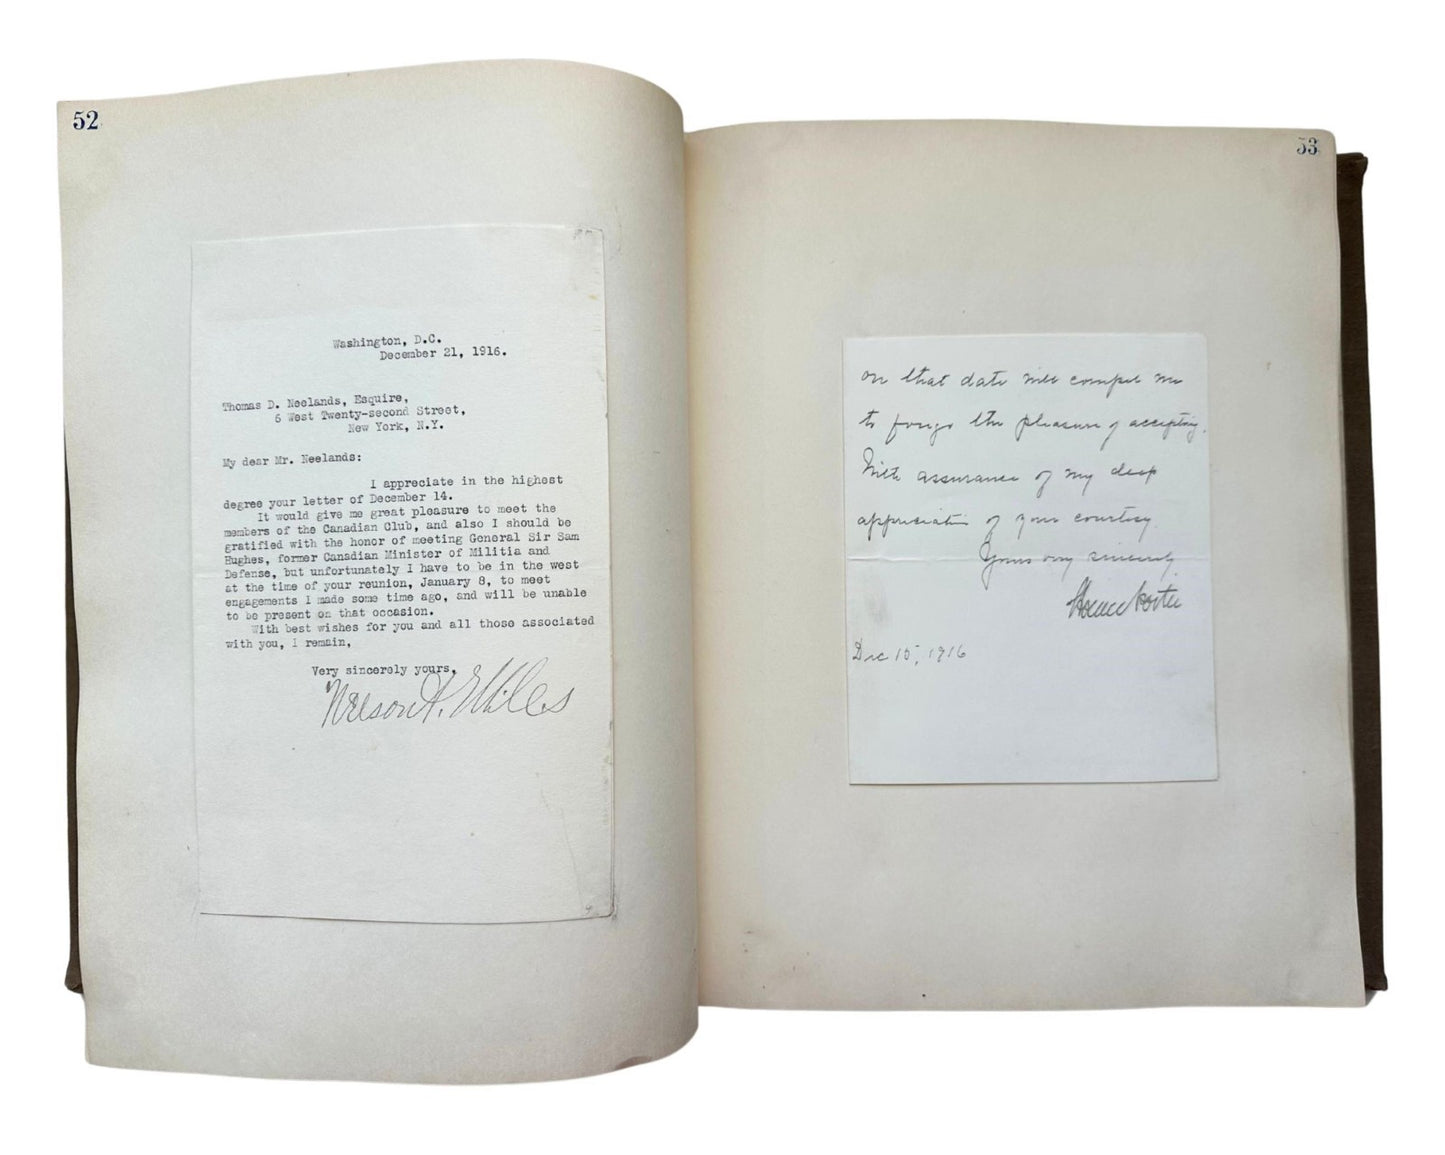 52
Washington, D.C.
December 21, 1916.
Thomas D. Neelands, Esquire,
6 West Twenty-second Street,
New York, N.Y.
My dear Mr. Neelands:
I appreciate in the highest
degree your letter of December 14.
It would give me great pleasure to meet the
members of the Canadian Club, and also I should be
gratified with the honor of meeting General Sir Sam
Hughes, former Canadian Minister of Militia and
Defense, but unfortunately I have to be in the west
at the time of your reunion, January 8, to meet
engagements I made some time ago, and will be unable
to be present on that occasion.
With best wishes for you and all those associated
with you, I remain,
Very sincerely yours,
Nelson A. Miles
53
on that date will compel me
to forego the pleasure of accepting.
With assurance of my deep
appreciation of your courtesy.
Yours very sincerely,
Horace Porter
Dec 15, 1916